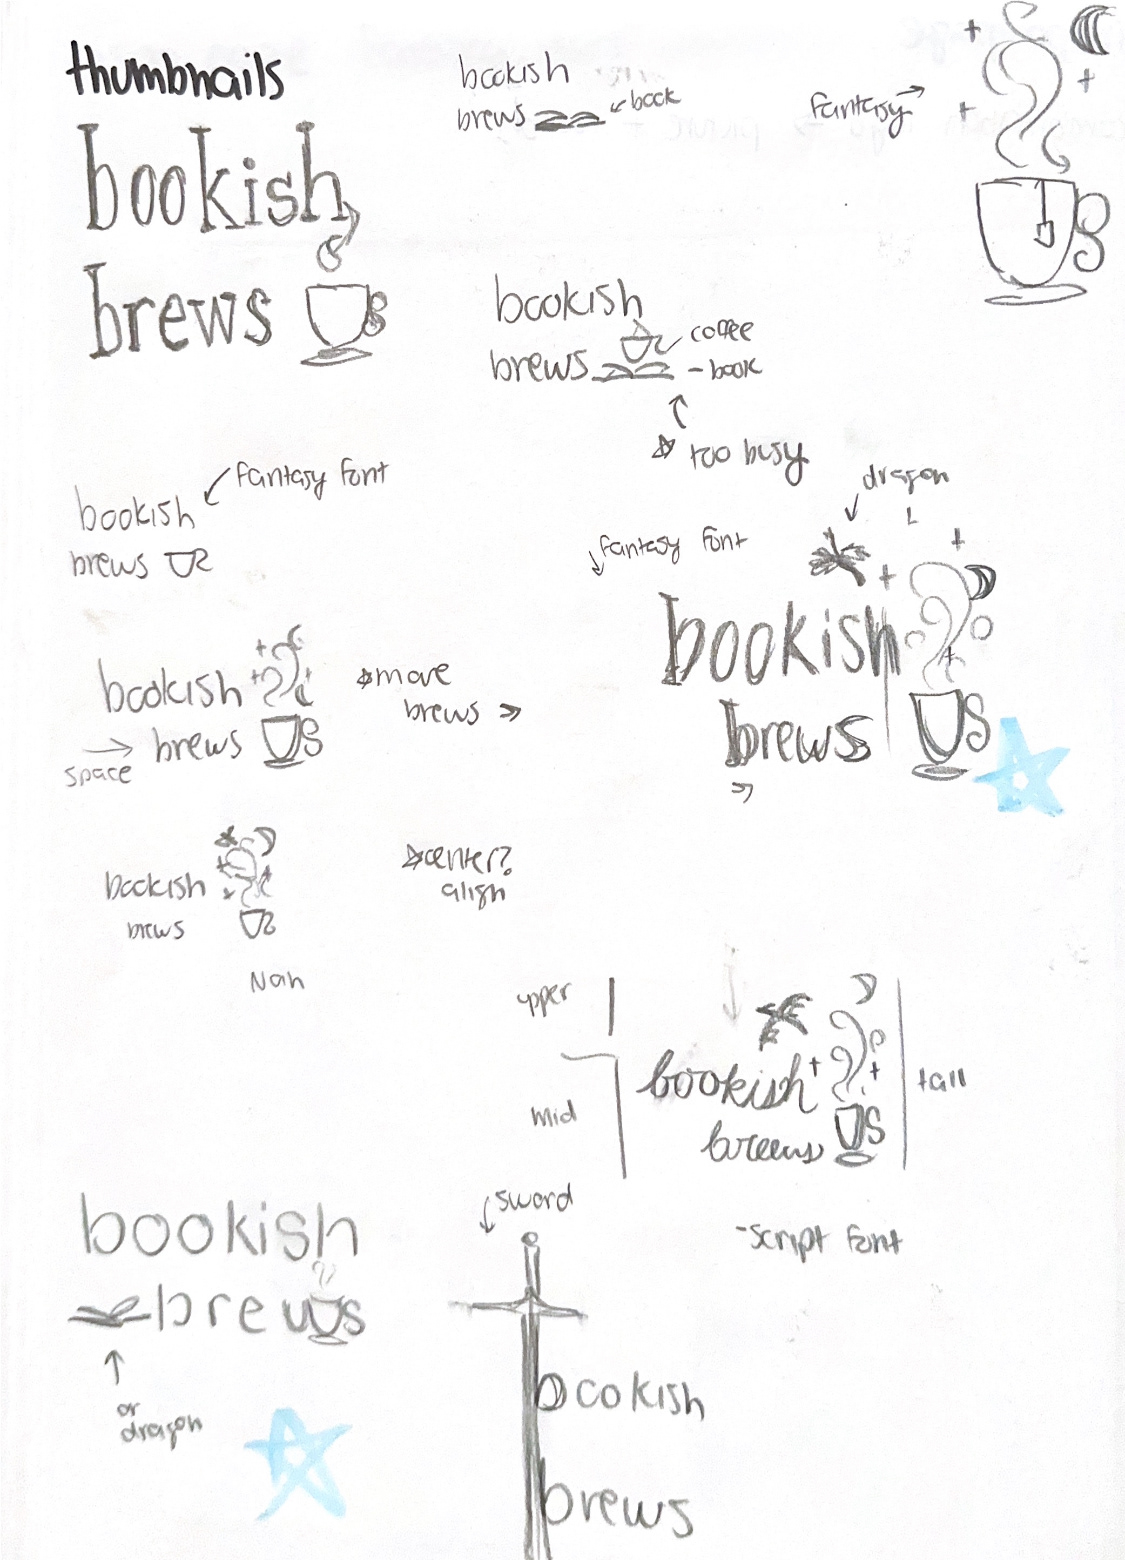 thumbnails
bookish
brews
bookish
brews
book
fantasy
bookish
brews
coffee
- book
too busy
fantasy font
bookish
brews
dragon
fantasy font
bookish
brews
bookish
brews
space
move
brews
bookish
brews
center?
align
Nah
upper
mid
bookish
brews
tall
-script font
bookish
brews
or
dragon
sword
bookish
brews